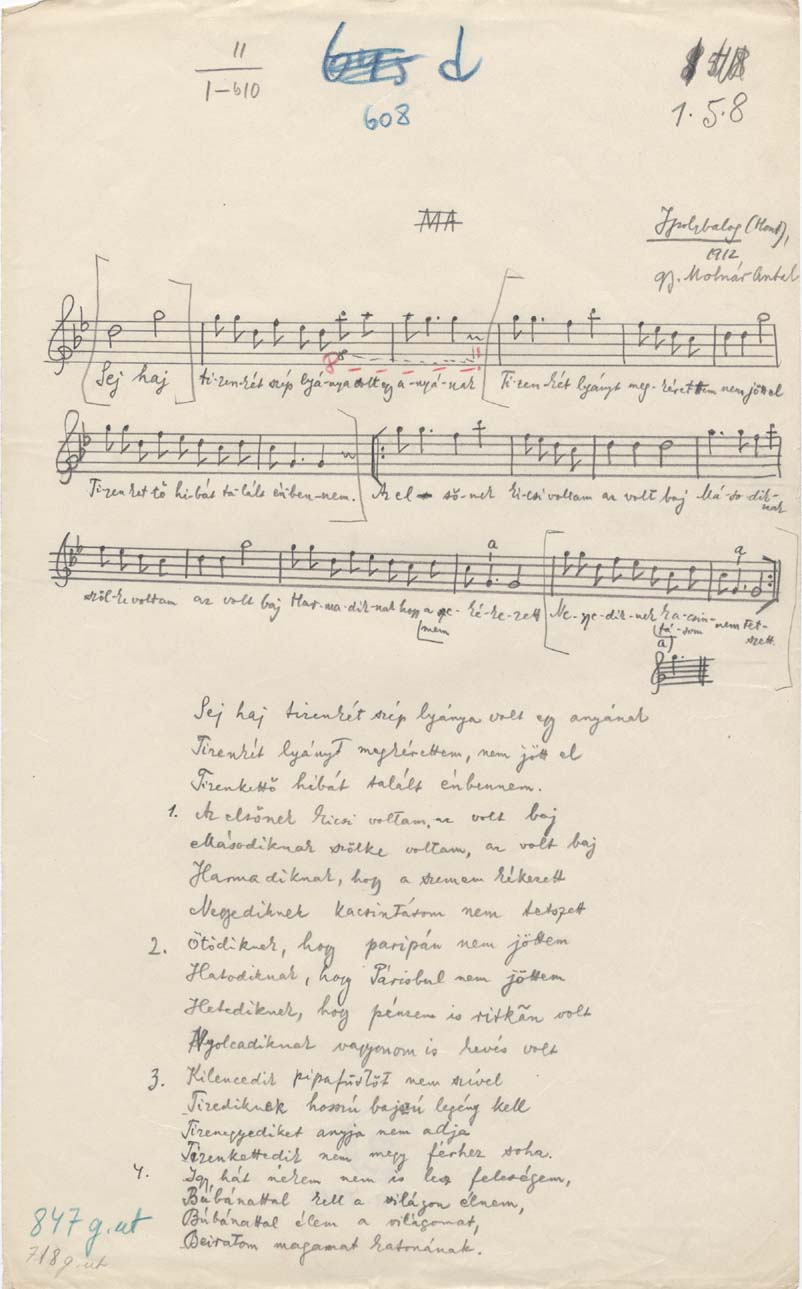 II
1-610
d
608
1.5.8
MA
Ipolybalog (Hont),
1912,
gy. Molnár Antal
Sej haj ti-zen-két szép lyá-nya volt egy a-nyá-nak Ti-zen-két lyányt meg-kérettem nem jött el
Ti-zen ket-tő hi-bát ta-lált énben-nem. Az el-ső-nek ki-csi voltam az volt baj Má-so-dik-nak
szől-ke voltam az volt baj Har-ma-dik-nak hogy a ké-ke-zett Ne-gye-dik-nek ka-csin-nem tet-szett.
a
a
tá-som
a)
Sej haj tizenkét szép lyánya volt egy anyának
Tizenkét lyányt megkérettem, nem jött el
Tizenkettő hibát talált énbennem.
1. Az elsőnek kicsi voltam, az volt baj
Másodiknak szőlke voltam, az volt baj
Harmadiknak, hogy a szemem kékezett
Negyediknek kacsintásom nem tetszett
2. Ötödiknek, hogy paripán nem jöttem
Hatodiknak, hogy Párisbul nem jöttem
Hetediknek, hogy pénzem is ritkán volt
Nyolcadiknak vagyonom is kevés volt
3. Kilencedik pipafüstöt nem szível
Tizediknek hosszú bajszú legény kell
Tizenegyediket anyja nem adja
Tizenkettedik nem megy férhez soha.
4. Így hát nékem nem is lesz feleségem,
Búbánattal kell a világon élnem,
Búbánattal élem a világomat,
Beíratom magamat katonának.
847 g.ut
718 g.ut